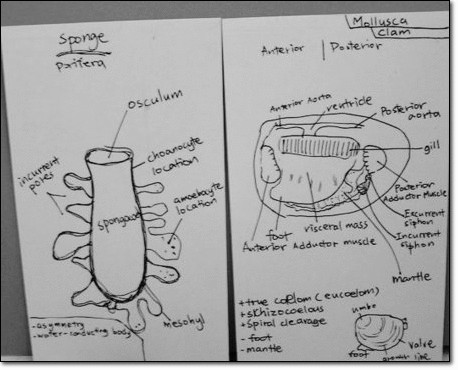 Sponge
Porifera
osculum
incurrent
pores
choanocyte
location
amoebocyte
location
mesohyl
-asymmetry
-water-conducting body
Mollusca
clam
Anterior | Posterior
Anterior Aorta
ventricle
Posterior
aorta
gill
Posterior
Adductor Muscle
Excurrent
siphon
Incurrent
siphon
foot
visceral mass
Anterior Adductor muscle
mantle
+true coelom (eucoelom)
+skhizocoelous
+spiral cleavage
-foot
-mantle
umbo
valve
foot